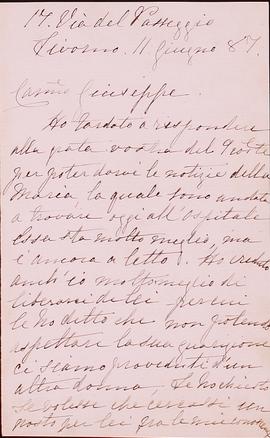 17. Via del Passeggio
Livorno. 11 Giugno 87.
Carmo Giuseppe.
Ho tardato a rispondere
alla grata vostra del 9 corte
per poter darvi le notizie della
Maria, la quale sono andata
a trovare oggi all'Ospitale
Essa sta molto meglio, ma
è ancora a letto. Ho creduto
anch'io molto meglio di
liberarsi di lei per cui
le ho detto che non potendo
aspettare la sua guarigione
ci siamo provveduti d'un
altra donna, Le ho chiesto
se volesse che cercassi un
posto per lei fra le mie